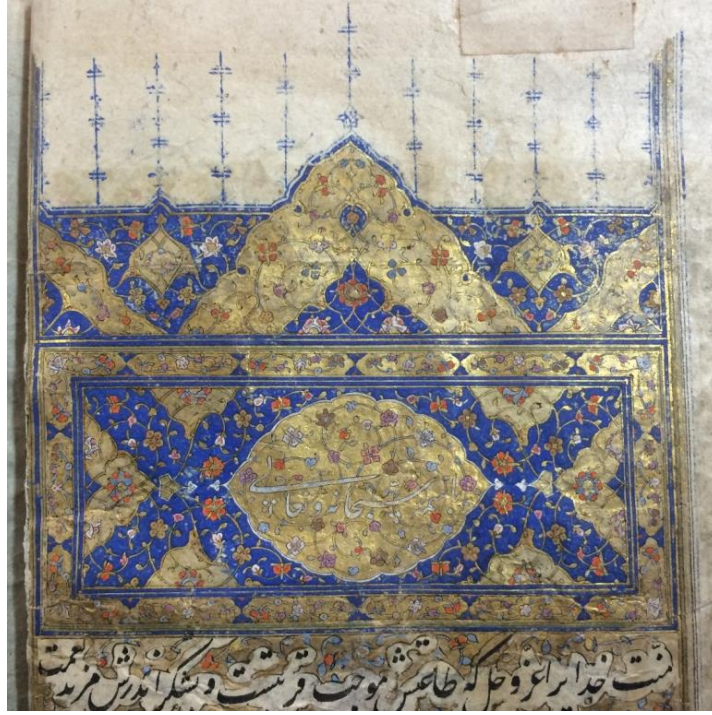 سبحانه و تعالی
منت خدایرا عز و جل که طاعتش موجب قربتست و بشکر اندرش مزید نعمت